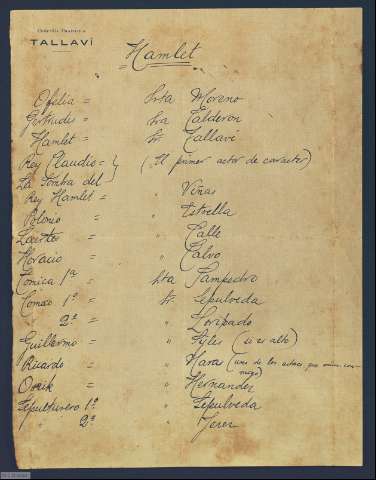 Compañía Dramática
TALLAVÍ
Hamlet
Ofelia = Srta Moreno
Gertrudis = Sra Calderon
Hamlet = Sr Tallaví
Rey Claudio = } (El primer actor de caracter)
La Sombra del
Rey Hamlet = " Viñas
Polonio = " Estrella
Laertes = " Calle
Horacio = " Calvo
Comica 1ª = Srta Sampedro
Comico 1º = Sr Sepulveda
" 2º = "
Guillermo = " (si es alto)
Ricardo = " Mara (uno de los actores que
Osrik = " Hernandes
Sepulturero 1º " Sepulveda
" 2º " Jerez